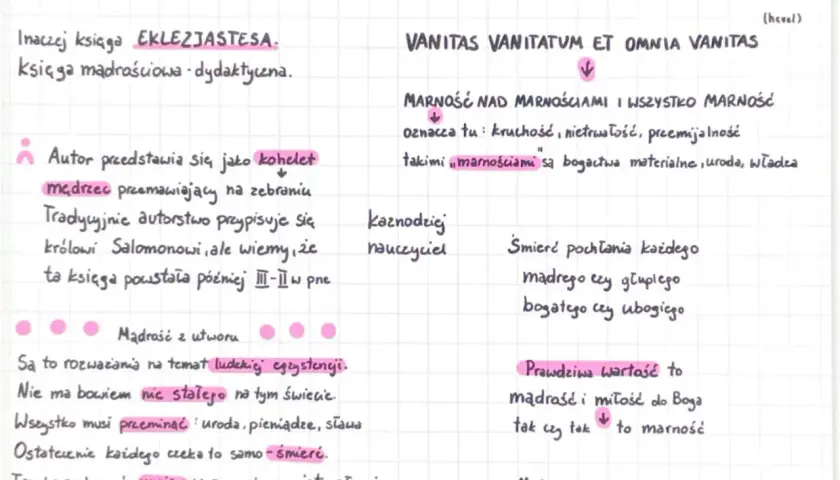 Inaczej księga EKLEZJASTESA.
Księga mądrościowa - dydaktyczna.
Autor przedstawia się jako kohelet
↓
mędrzec przemawiający na zebraniu
Tradycyjnie autorstwo przypisuje się
królowi Salomonowi, ale wiemy, że
ta księga powstała później III-II w pne
kaznodziej
nauczyciel
Mądrość z utworu
Są to rozważania na temat ludzkiej egzystencji.
Nie ma bowiem nic stałego na tym świecie.
Wszystko musi przeminąć: uroda, pieniądze, sława
Ostatecznie każdego czeka to samo - śmierć.
(hevel)
VANITAS VANITATUM ET OMNIA VANITAS
↓
MARNOŚĆ NAD MARNOŚCIAMI I WSZYSTKO MARNOŚĆ
↓
oznacza tu: kruchość, nietrwałość, przemijalność
takimi „marnościami" są bogactwa materialne, uroda, władza
Śmierć pochłania każdego
mądrego czy głupiego
bogatego czy ubogiego
Prawdziwa wartość to
mądrość i miłość do Boga
tak czy tak ↓ to marność